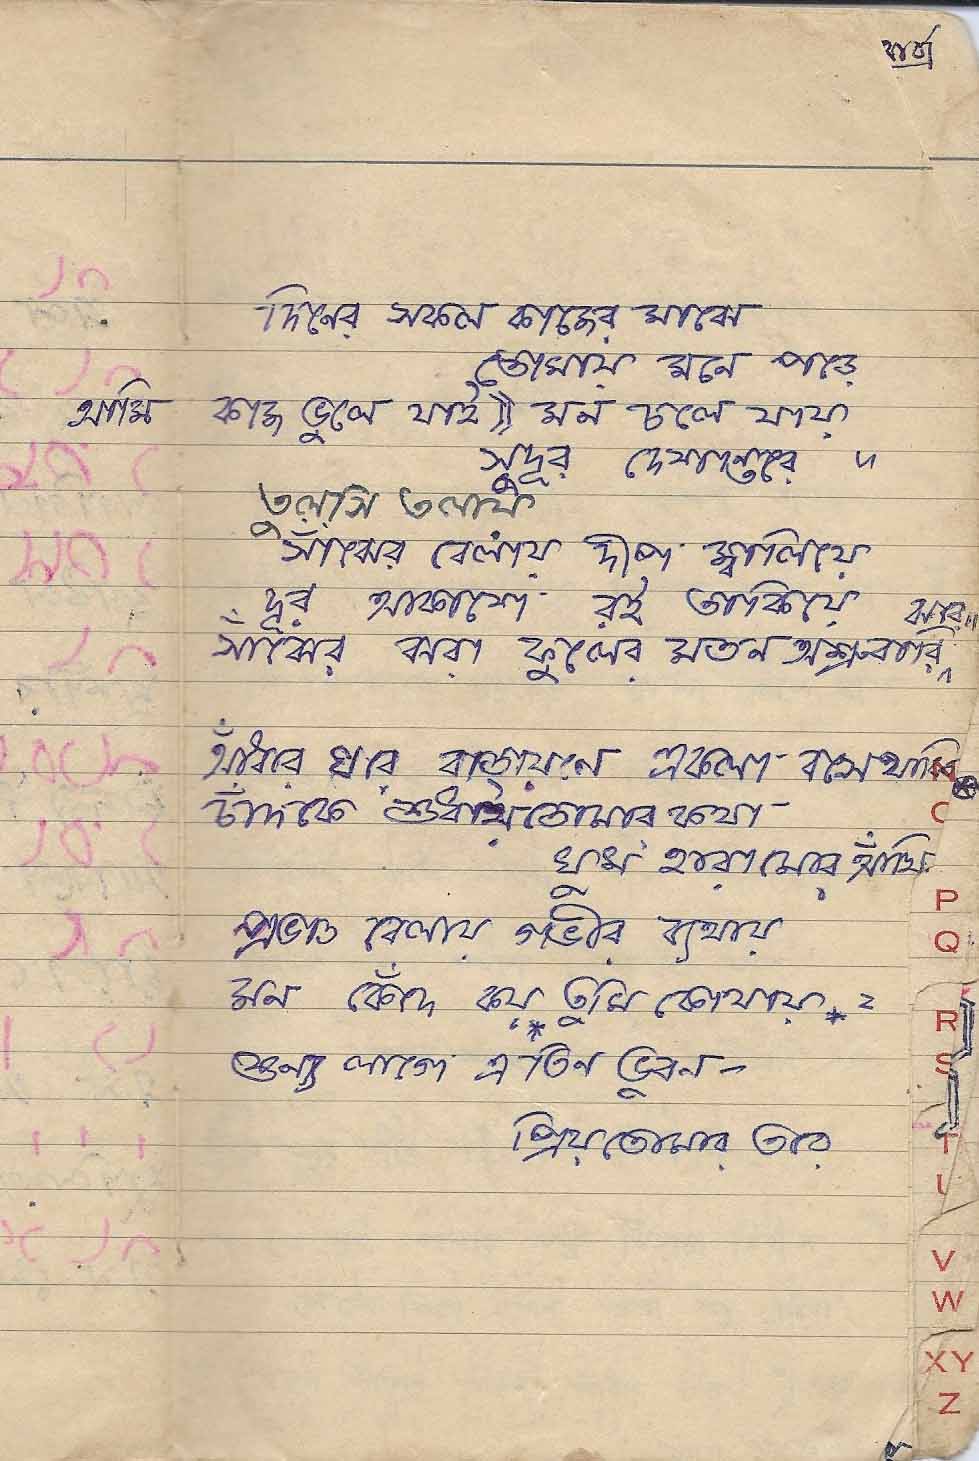 দিনের সকল কাজের মাঝে
তোমায় মনে পড়ে
আমি কাজ ভুলে যাই মন চলে যায়
সুদূর দেশান্তরে ৸
তুলসি তলায়
সাঁঝের বেলায় দীপ জ্বালিয়ে
দূর আকাশে রই তাকিয়ে
সাঁঝের ঝরা ফুলের মতন অশ্রুবারি ঝরে॥
আঁধার ঘরে বাতায়নে একলা বসে থাকি
চাঁদকে শুধাই তোমার কথা
ঘুম হারা মোর আঁখি
প্রভাত বেলায় গভীর ব্যথায়
মন কেঁদে কয় তুমি কোথায় * ২
শুন্য লাগে এ তিন ভুবন –
প্রিয় তোমার তরে
C
P
Q
R
S
T
U
V
W
XY
Z